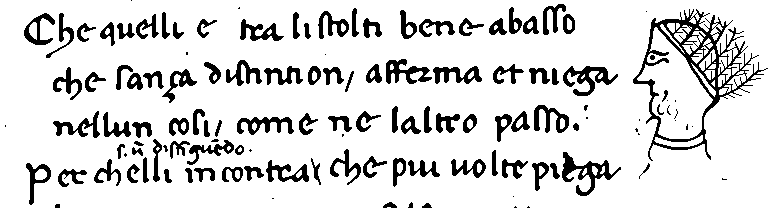 Che quelli e tra li stolti bene abasso
che sança distintion, afferma et niega
nellun cosi, come ne laltro passo.
s. ñ distīguēdo.
Per chelli incontra, che piu uolte piega